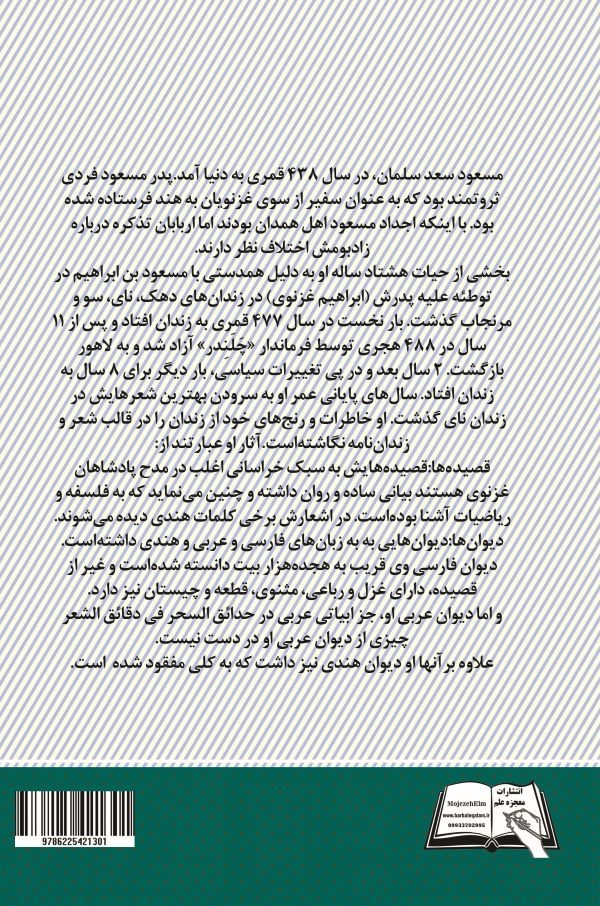 مسعود سعد سلمان، در سال ۴۳۸ قمری به دنیا آمد.پدر مسعود فردی
ثروتمند بود که به عنوان سفیر از سوی غزنویان به هند فرستاده شده
بود. با اینکه اجداد مسعود اهل همدان بودند اما اربابان تذکره درباره
زادبومش اختلاف نظر دارند.
بخشی از حیات هشتاد ساله او به دلیل همدستی با مسعود بن ابراهیم در
توطئه علیه پدرش (ابراهیم غزنوی) در زندان‌های دهک، نای، سو و
مرنجاب گذشت. بار نخست در سال ۴۷۷ قمری به زندان افتاد و پس از ۱۱
سال در ۴۸۸ هجری توسط فرماندار «چَلَندر» آزاد شد و به لاهور
بازگشت. ۲ سال بعد و در پی تغییرات سیاسی، بار دیگر برای ۸ سال به
زندان افتاد. سال‌های پایانی عمر او به سرودن بهترین شعرهایش در
زندان نای گذشت. او خاطرات و رنج‌های خود از زندان را در قالب شعر و
زندان‌نامه نگاشته‌است.آثار او عبارتند از:
قصیده‌ها:قصیده‌هایش به سبک خراسانی اغلب در مدح پادشاهان
غزنوی هستند بیانی ساده و روان داشته و چنین می‌نماید که به فلسفه و
ریاضیات آشنا بوده‌است. در اشعارش برخی کلمات هندی دیده می‌شوند.
دیوان‌ها:دیوان‌هایی به به زبان‌های فارسی و عربی و هندی داشته‌است.
دیوان فارسی وی قریب به هجده‌هزار بیت دانسته شده‌است و غیر از
قصیده، دارای غزل و رباعی، مثنوی، قطعه و چیستان نیز دارد.
و اما دیوان عربی او، جز ابیاتی عربی در حدائق السحر فی دقائق الشعر
چیزی از دیوان عربی او در دست نیست.
علاوه بر آنها او دیوان هندی نیز داشت که به کلی مفقود شده است.
انتشارات
معجزه علم
MojezehElm
www.barbaleqalam.ir
09933702995
9786225421301